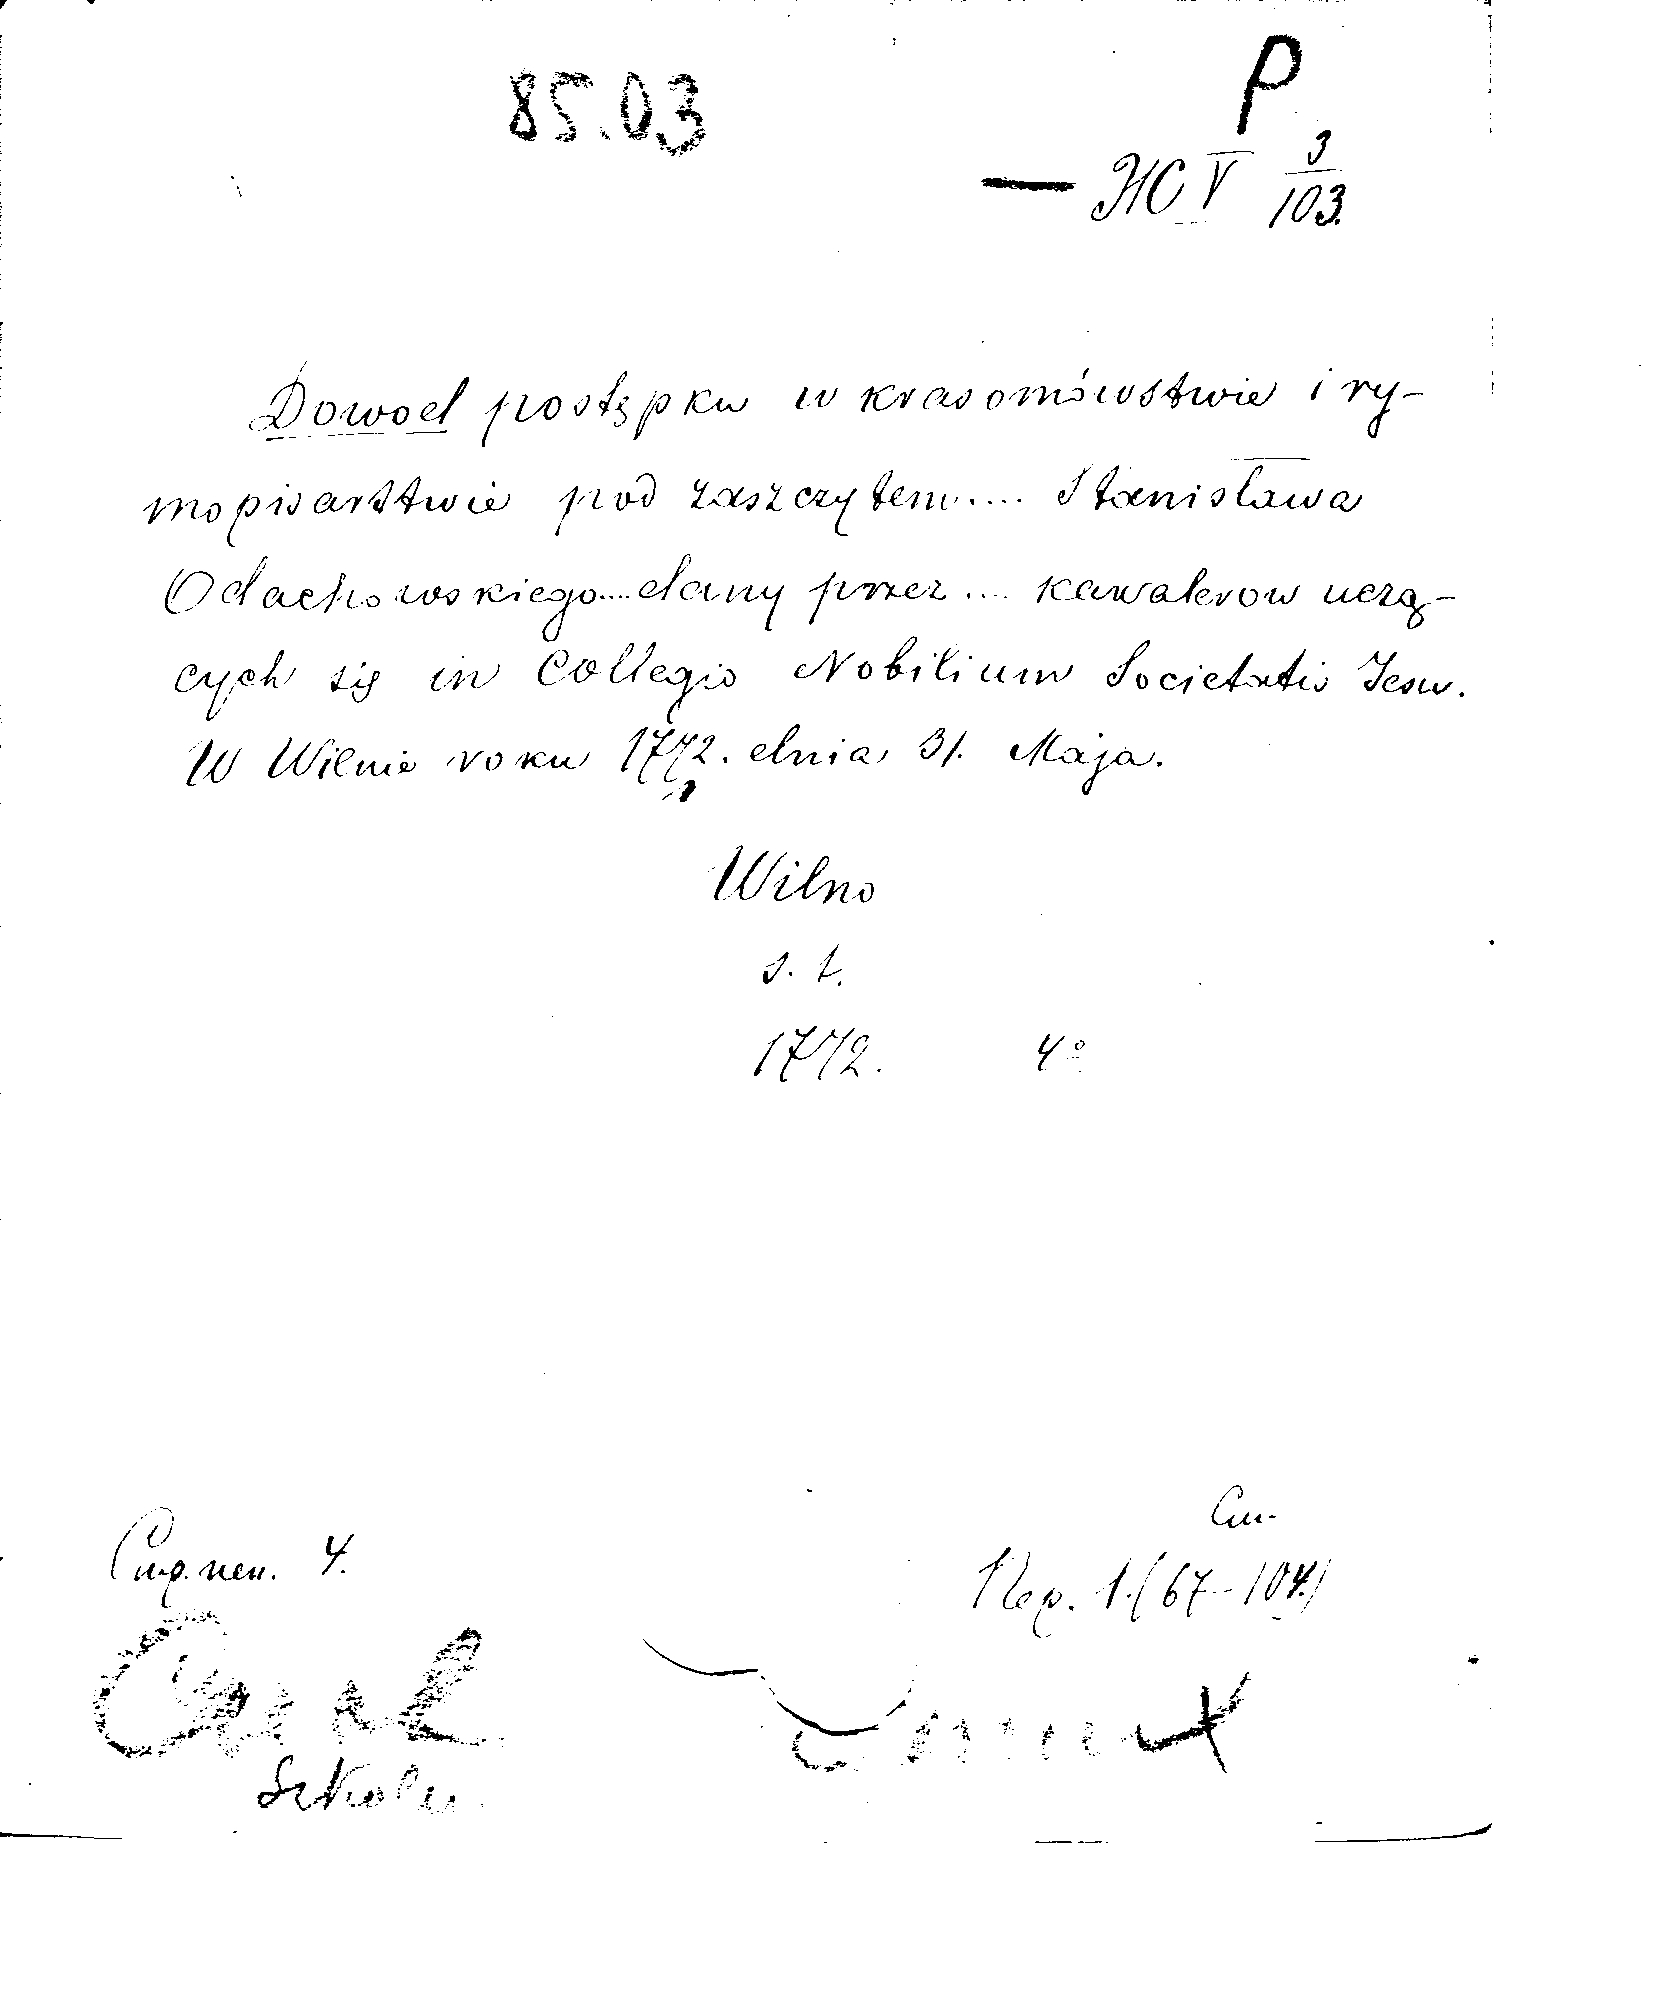 P
85.03
— HC V 3/103.
Dowod postępku w krasomówstwie i ry-
mopisarstwie pod zaszczytem.... Stanisława
Odachowskiego....dany przez.... kawalerow uczą-
cych się in Collegio Nobilium Societatis Jesu.
W Wilnie roku 1772. dnia 31. Maja.
Wilno
s. t.
1772. 4°
Cm.
Стр. нен. 4.
Пер. 1.(67-104.)
Szkoln